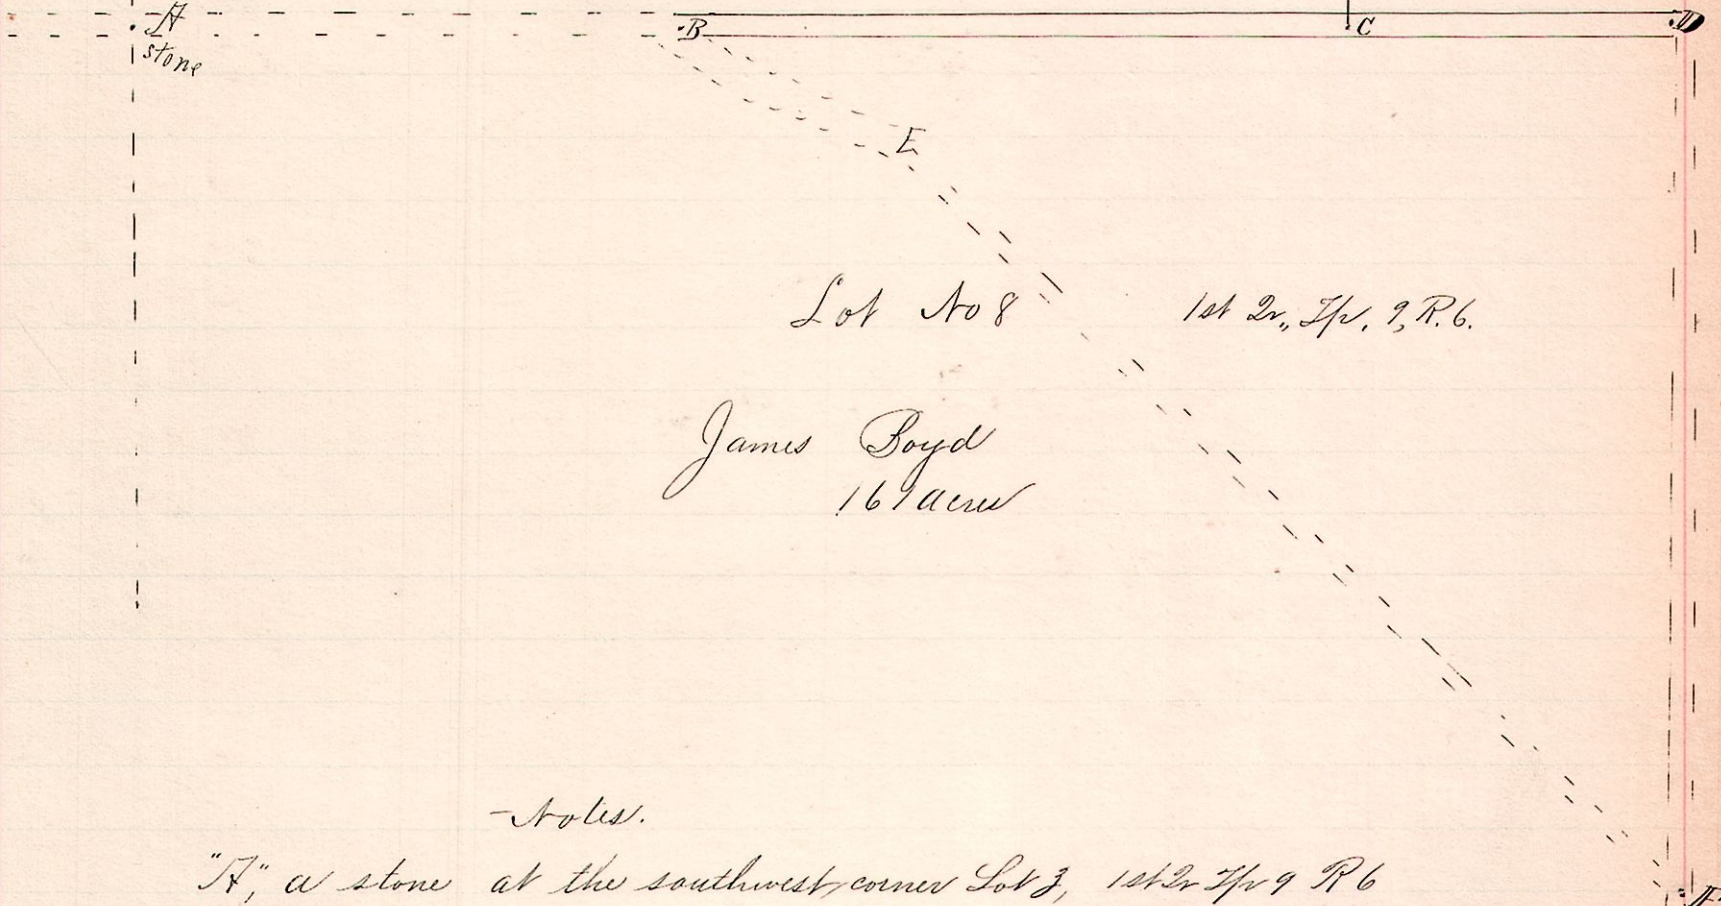 A B C D
stone
E
Lot No 8 1st Qr., Tp. 9, R. 6.
James Boyd
167 acres
Notes.
"A", a stone at the southwest corner Lot 3, 1st Qr Tp 9 R 6
F